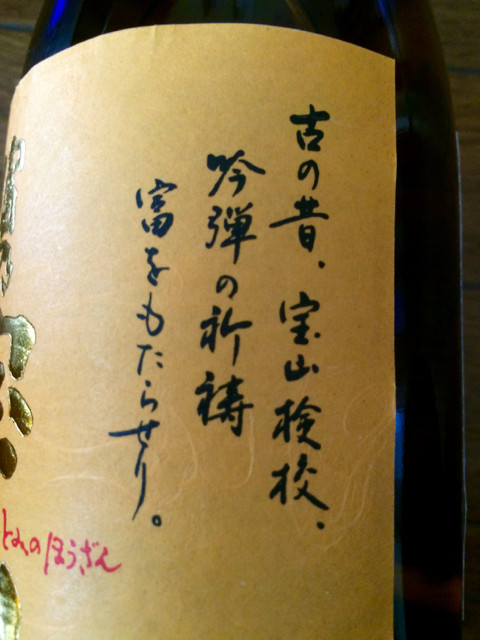 古の昔、宝山検校、
吟弾の祈祷
富をもたらせり。
とみのほうざん